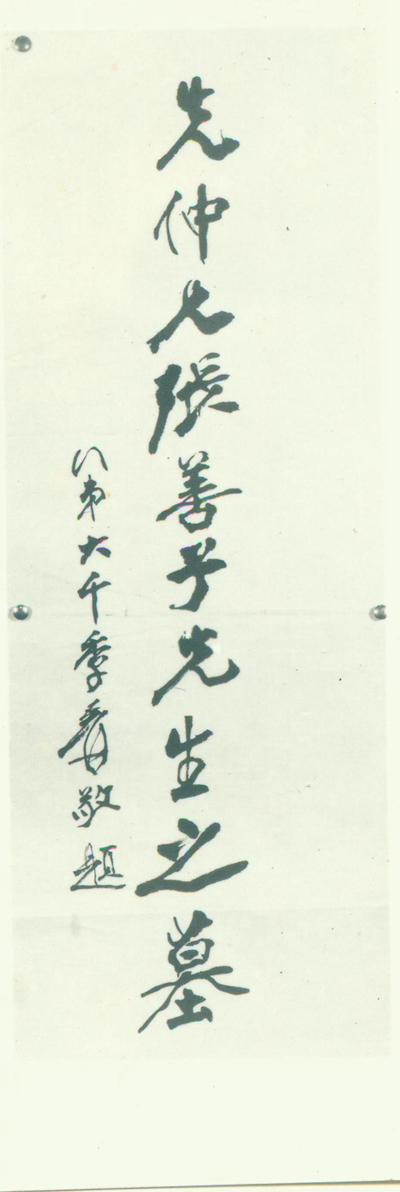 先仲兄張善子先生之墓
八弟大千季爰敬題